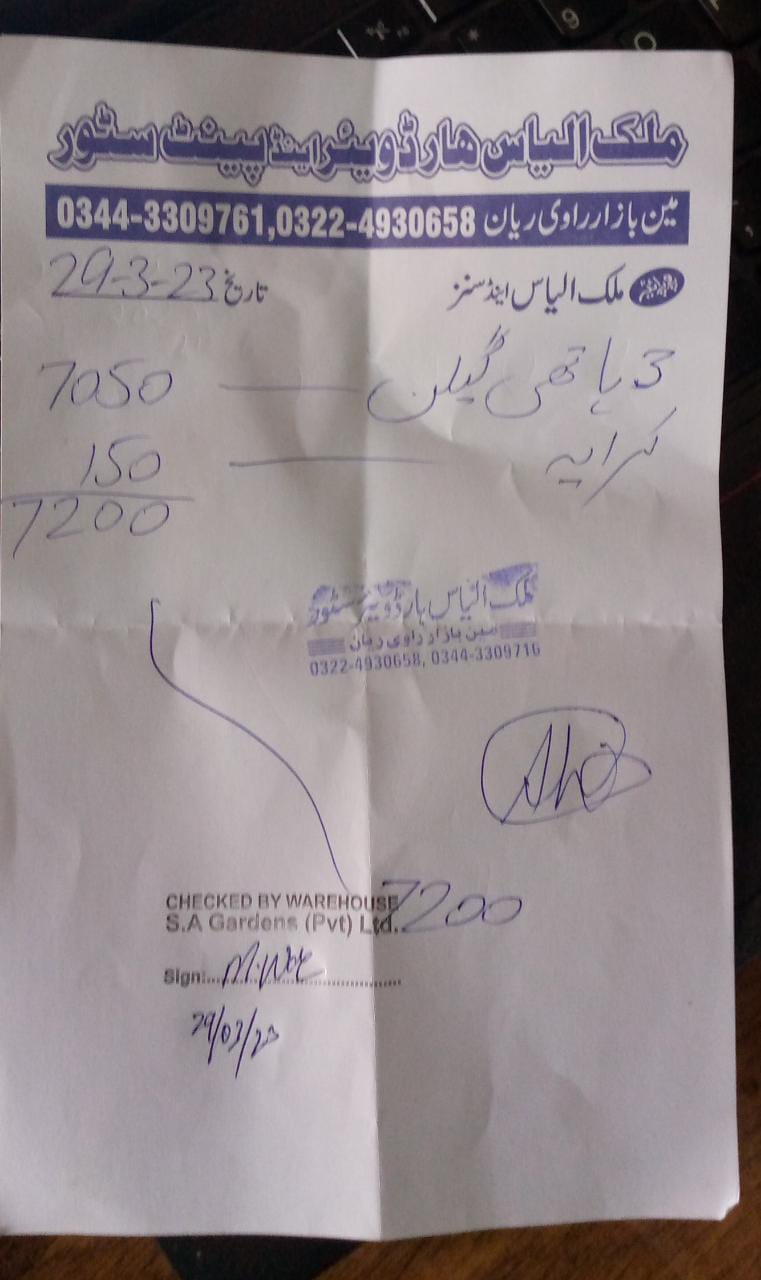 ملک الیاس ھارڈویئر اینڈ پینٹ سٹور
مین بازار راوی ریان 0344-3309761,0322-4930658
ملک الیاس اینڈ سنز
تاریخ 29-3-23
3 ہاتھی گیلن — 7050
کرایہ — 150
7200
ملک الیاس ہارڈویئر سٹور
مین بازار راوی ریان
0322-4930658, 0344-3309716
7200
CHECKED BY WAREHOUSE
S.A Gardens (Pvt) Ltd.
Sign:
29/03/23